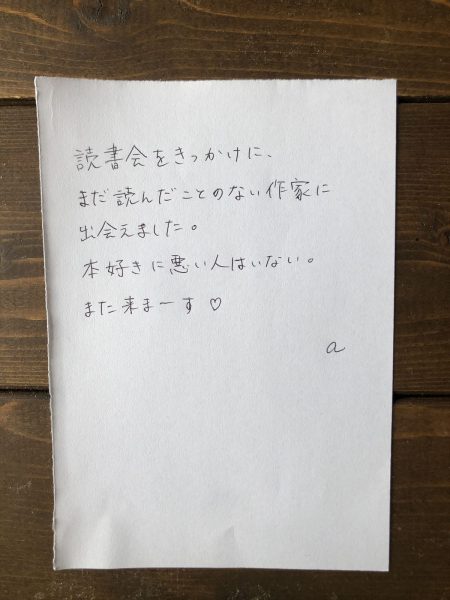 読書会をきっかけに、
まだ読んだことのない作家に
出会えました。
本好きに悪い人はいない。
また来まーす♡
a